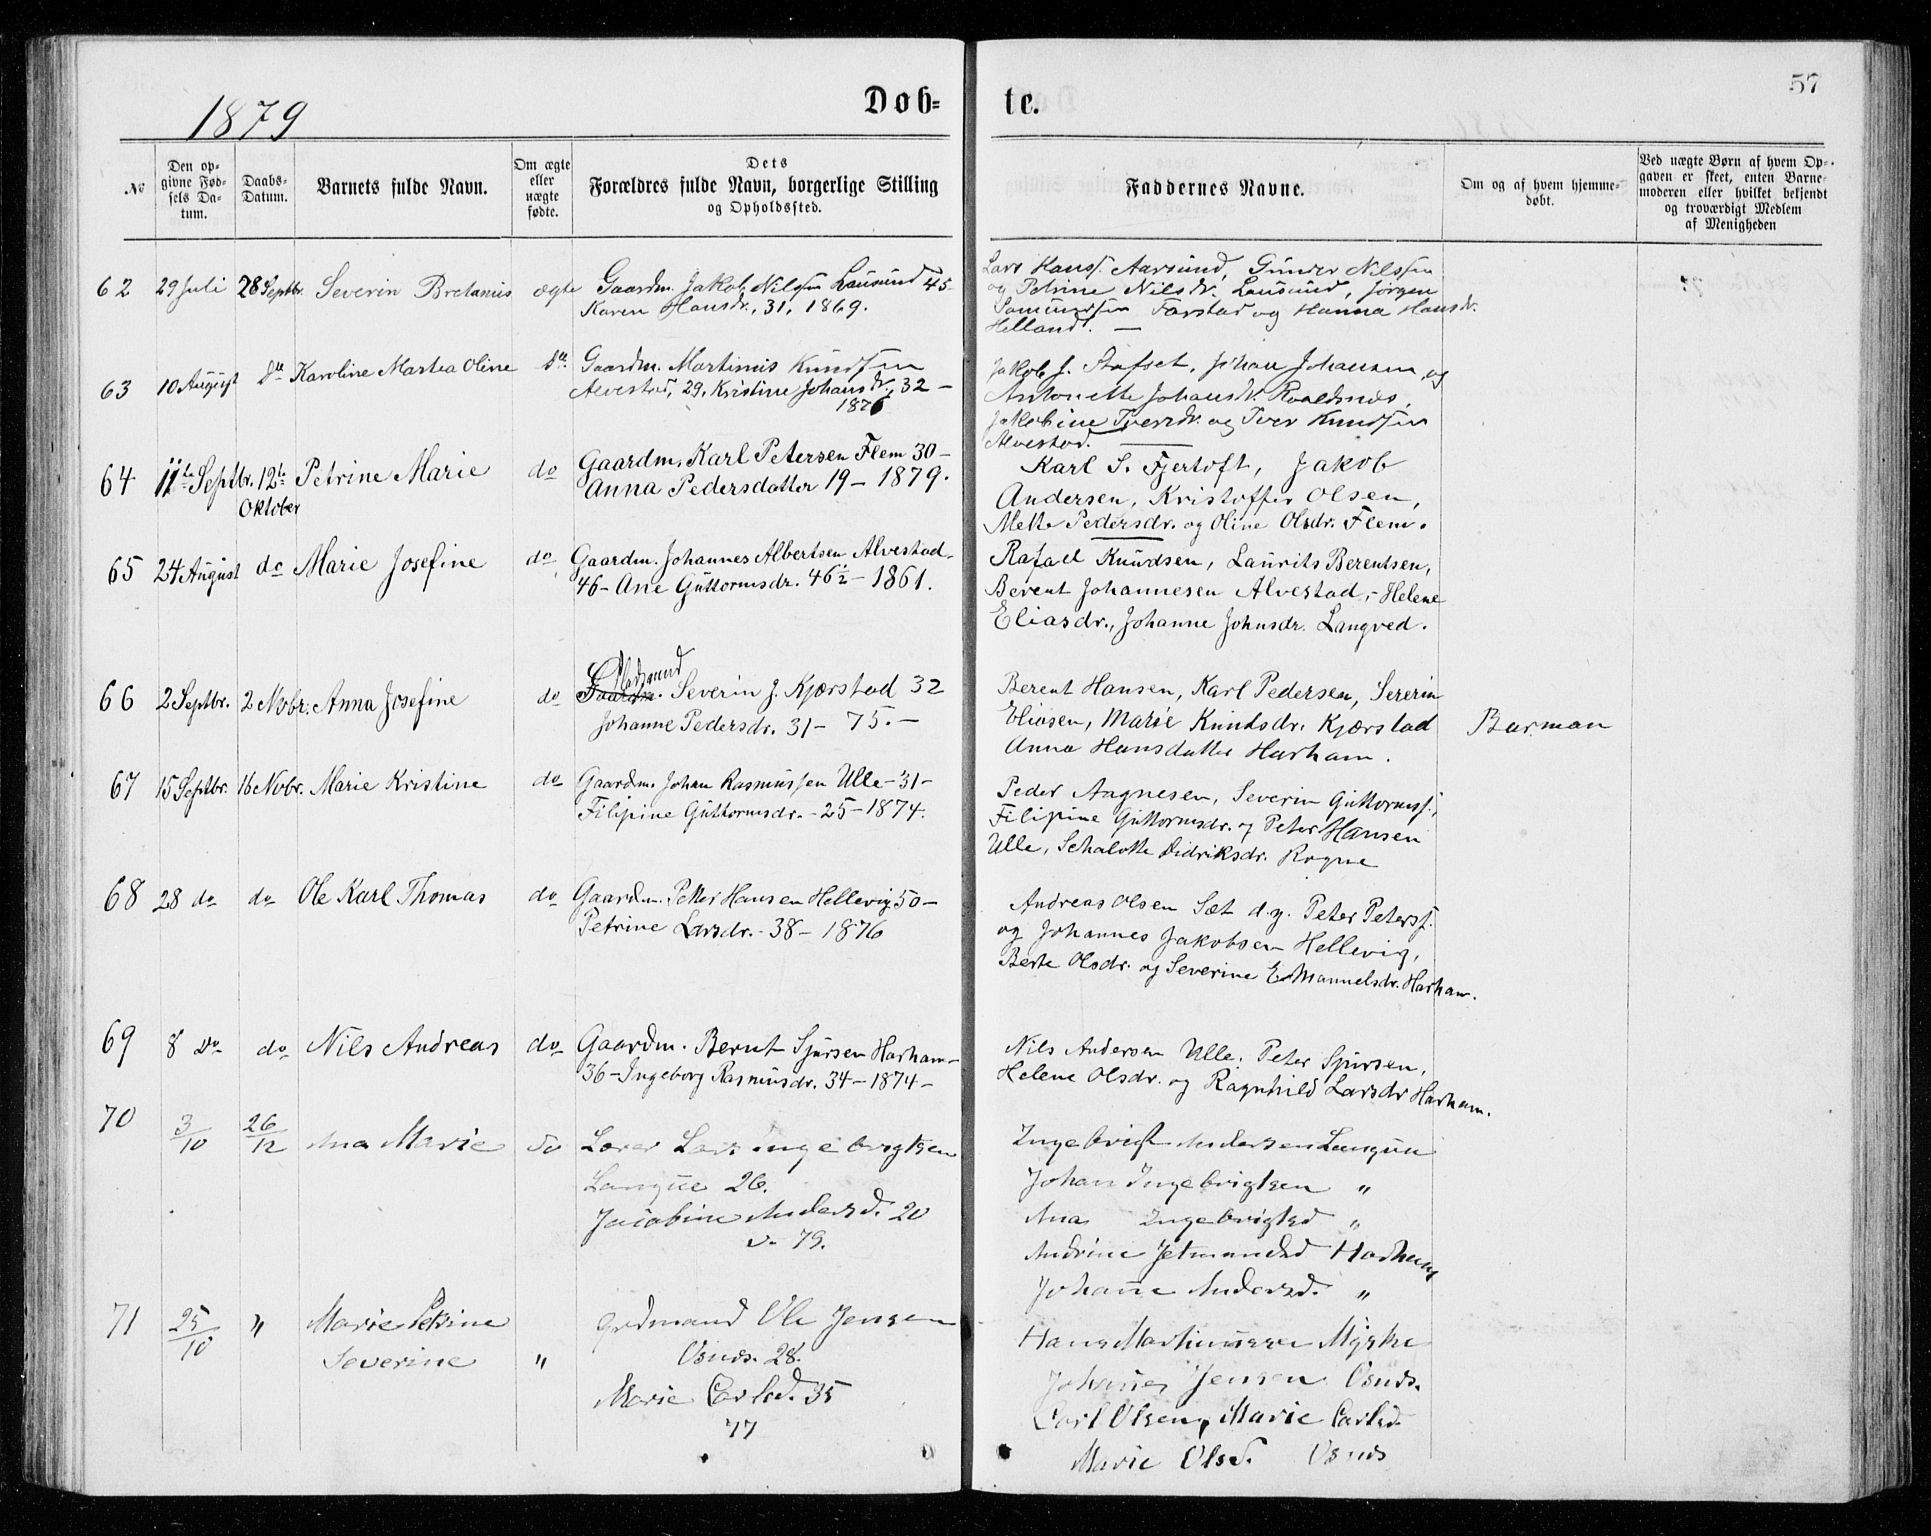 57
1879
Døb=
te.
No
Den op-
givne Fød-
sels Da-
tum.
Daabs-
Datum.
Barnets fulde Navn.
Om ægte
eller
uægte
fødte.
Dets
Forældres fulde Navn, borgerlige Stilling
og Opholdssted.
Faddernes Navne.
Om og af hvem hjemme-
døbt.
Ved uægte Børn af hvem Op-
gaven er skeet, enten Barne-
moderen eller hvilket bekjendt
og troværdigt Medlem
af Menigheden
62 29 Juli 28 Septbr. Severin Bretanius ægte Gaardm. Jakob Nilsen Lausund 45-
Karen Hansdr., 31, 1869.
Lars Hanss. Aarsund, Gunder Nilssen
og Petrine Nilsdr. Lausund, Jørgen
Samundsen Farstad og Hanna Hansdr.
Helland. —
63 10 August Do Karoline Martea Oline Do Gaardm. Martinus Knudssen
Alvestad, 29, Kristine Johansdr. 32 -
1876
Jakob J. Stafset, Johan Johansen og
Antonette Johansdr. Roaldsnæs,
Jakobine Iversdr. og Iver Knudsen
Alvestad. —
64 11te Septbr. 12te Oktober Petrine Marie do Gaardm. Karl Petersen Flem 30 -
Anna Pedersdatter 19 - 1879.
Karl S. Fjertoft, Jakob
Andersen, Kristoffer Olsen,
Mette Pedersdr. og Oline Olsdr. Flem.
65 24 August do Marie Josefine do Gaardm. Johannes Albertsen Alvestad -
46 - Ane Guttormsdr. 46½ - 1861.
Rafael Knudsen, Laurits Berentsen,
Berent Johannesen Alvestad, - Helene
Eliasdr., Johanne Johnsdr. Langved.
66 2 Septbr. 2 Novbr. Anna Josefine do Gaardm. Severin J. Kjærstad 32
Johanne Pedersdr. 31 - 75. -
Berent Hansen, Karl Pedersen, Severin
Eliasen, Marie Knutsdr. Kjærstad
Anna Hansdatter Harham.
Barman
67 15 Septbr. 16 Novbr. Marie Kristine do Gaardm. Johan Rasmussen Ulle - 31 -
Filipine Guttormsdr. - 25 - 1874.
Peder Aagnesen, Severin Guttormss.,
Filipine Guttormsdr. og Peter Hansen
Ulle, Schalotte Didriksdr. Rogne
68 28 do do Ole Karl Thomas do Gaardm. Petter Hansen Hellevig 50 -
Petrine Larsdr. - 38 - 1876
Andreas Olsen Sæt d.y. Peter Peterss.
og Johannes Jakobsen Hellevig,
Berte Olsdr. og Severine Emmanuelsdr. Harham.
69 8 do do Nils Andreas do Gaardm. Bernt Sjursen Harham -
36 - Ingeborg Rasmusdr. 34 - 1874 -
Nils Andersen Ulle, Peter Sjursen,
Helene Olsdr. og Ragnhild Larsdr Harham.
70 3/10 26/12 Ana Marie do Lærer Lars Ingebrigtsen
Langue 26.
Jacobine Andersd. 20
79.
Ingebrigt Andersen Langue
Johan Ingebrigtsen "
Ana Ingebrigtsd "
Andrine Jetmundsd Harham
Johanne Andersd. "
71 25/10 " Marie Petrine
Severine " Grdmand Ole Jensen
Osnæs. 28.
Marie Carlsd. 35
77
Hans Martinussen Myske
Johannes Jensen Osnæs.
Carl Olsen, Marie Carlsd
Marie Olsd. Osnæs